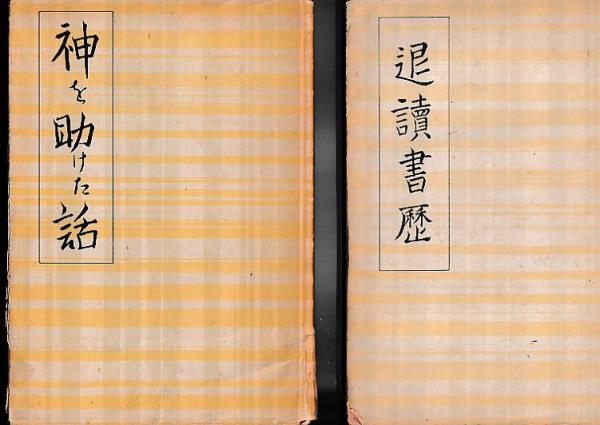 神を助けた話
退讀書歷